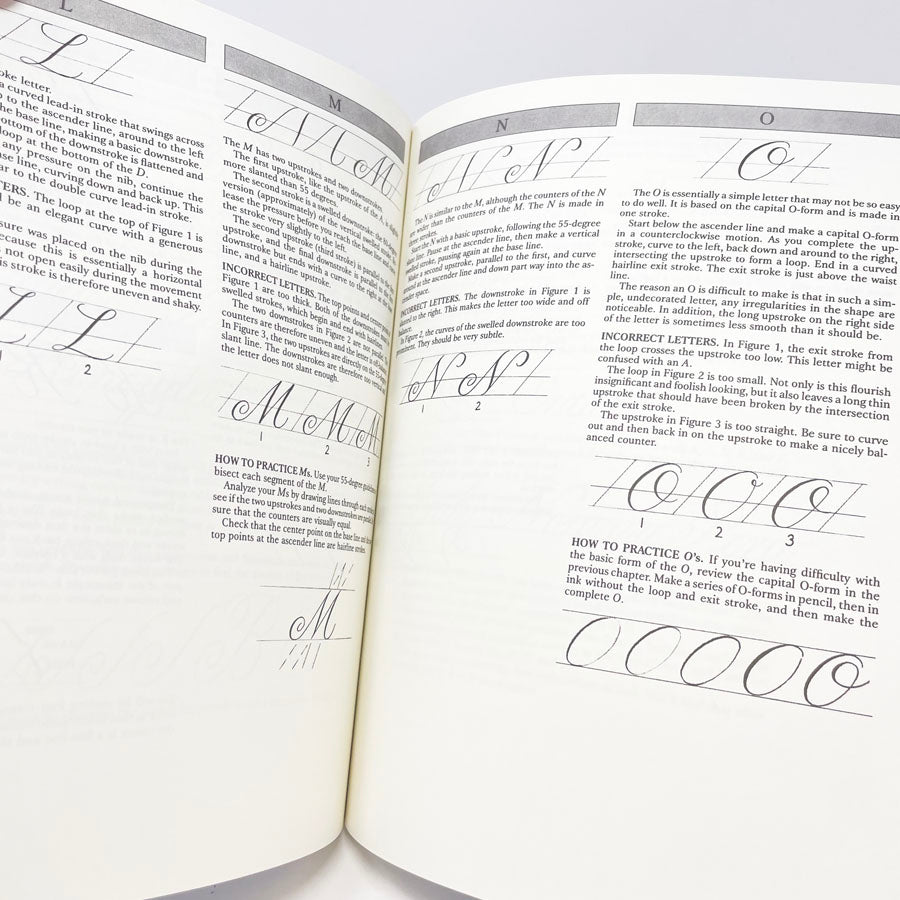 L
L
oke letter.
a curved lead-in stroke that swings across
to the ascender line, around to the left
the base line, making a basic downstroke.
bottom of the downstroke is flattened and
loop at the bottom of the D.
any pressure on the nib, continue the
ase line, curving down and back up. This
ar to the double curve lead-in stroke.
TERS. The loop at the top of Figure 1 is
ld be an elegant curve with a generous
sure was placed on the nib during the
because this is essentially a horizontal
not open easily during the movement
is stroke is therefore uneven and shaky.
L L
2
M
M M
The M has two upstrokes and two downstrokes.
The first upstroke, like the upstroke of the A, is slightly
more slanted than 55 degrees.
The second stroke is a swelled downstroke; the
version (approximately) of the vertical swelled stroke.
lease the pressure before you reach the base line
the stroke very slightly to the left.
The second upstroke (third stroke) is parallel to the
upstroke, and the final downstroke is parallel to the
downstroke but ends with a curve to the right at the
line, and a hairline upstroke.
INCORRECT LETTERS. The top points and center point
Figure 1 are too thick. Both of the downstrokes
swelled strokes, which begin and end with hairlines.
The two downstrokes in Figure 2 are not parallel.
counters are therefore uneven and the letter is off-balance.
In Figure 3, the two upstrokes are directly on the 55-degree
slant line. The downstrokes are therefore too vertical and
the letter does not slant enough.
M M M
1 2 3
HOW TO PRACTICE Ms. Use your 55-degree guidelines
bisect each segment of the M.
Analyze your Ms by drawing lines through each
see if the two upstrokes and two downstrokes are parallel
sure that the counters are visually equal.
Check that the center point on the base line and the
top points at the ascender line are hairline strokes.
M
N
N N
The N is similar to the M, although the counters of the N
are wider than the counters of the M. The N is made in
three strokes.
Start the N with a basic upstroke, following the 55-degree
line. Pause at the ascender line, then make a vertical
swelled stroke, pausing again at the base line.
Make a second upstroke, parallel to the first, and curve
around at the ascender line and down part way into the as-
cender space.
INCORRECT LETTERS. The downstroke in Figure 1 is
slanted to the right. This makes the letter too wide and off
balance.
In Figure 2, the curves of the swelled downstroke are too
prominent. They should be very subtle.
N N
1 2
O
O
The O is essentially a simple letter that may not be so easy
to do well. It is based on the capital O-form and is made in
one stroke.
Start below the ascender line and make a capital O-form
in a counterclockwise motion. As you complete the up-
stroke, curve to the left, back down and around to the right,
intersecting the upstroke to form a loop. End in a curved
hairline exit stroke. The exit stroke is just above the waist
line.
The reason an O is difficult to make is that in such a sim-
ple, undecorated letter, any irregularities in the shape are
noticeable. In addition, the long upstroke on the right side
of the letter is sometimes less smooth than it should be.
INCORRECT LETTERS. In Figure 1, the exit stroke from
the loop crosses the upstroke too low. This letter might be
confused with an A.
The loop in Figure 2 is too small. Not only is this flourish
insignificant and foolish looking, but it also leaves a long thin
upstroke that should have been broken by the intersection
of the exit stroke.
The upstroke in Figure 3 is too straight. Be sure to curve
out and then back in on the upstroke to make a nicely bal-
anced counter.
O O O
1 2 3
HOW TO PRACTICE O's. If you're having difficulty with
the basic form of the O, review the capital O-form in the
previous chapter. Make a series of O-forms in pencil, then in
ink without the loop and exit stroke, and then make the
complete O.
O O O O O